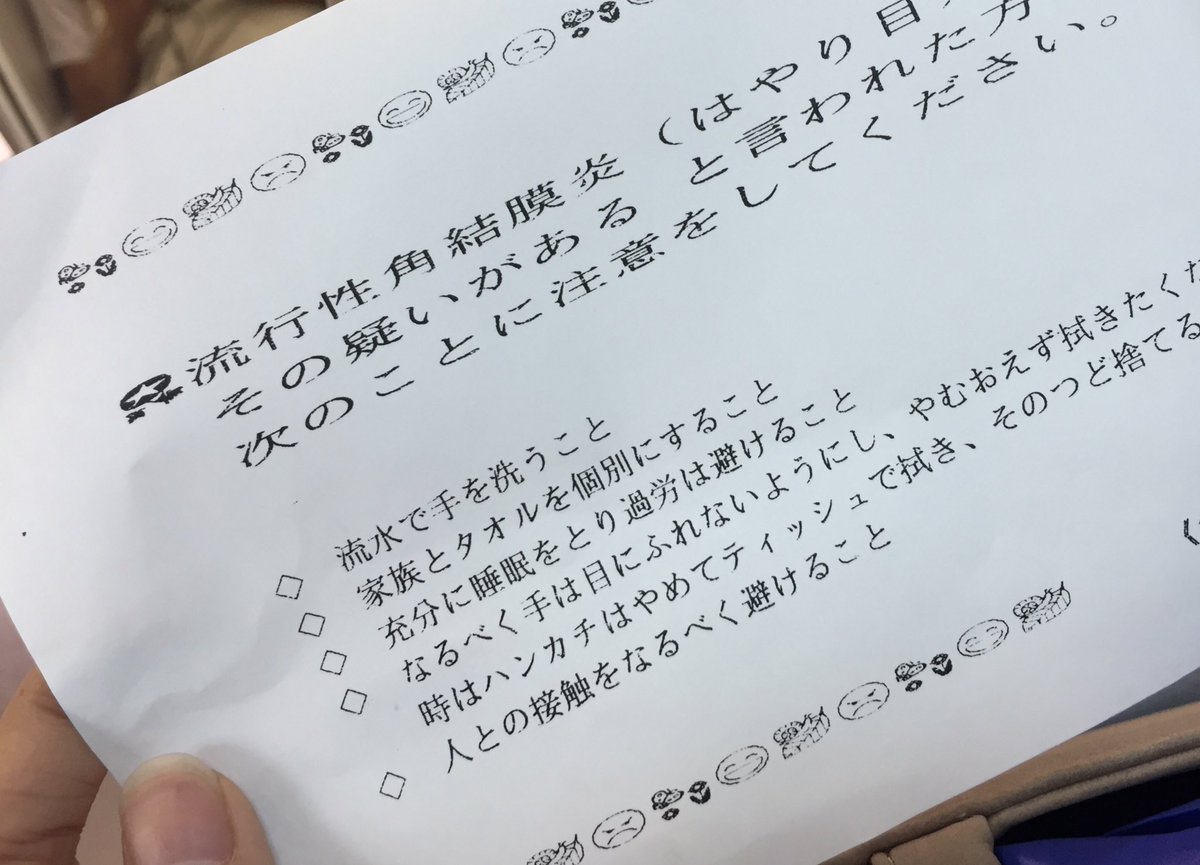 流行性角結膜炎（はやり目
その疑いがある と言われた方
次のことに注意をしてください。
◇ 流水で手を洗うこと
◇ 家族とタオルを個別にすること
◇ 充分に睡眠をとり過労は避けること
◇ なるべく手は目にふれないようにし、やむおえず拭きたくな
時はハンカチはやめてティッシュで拭き、そのつど捨てる
◇ 人との接触をなるべく避けること